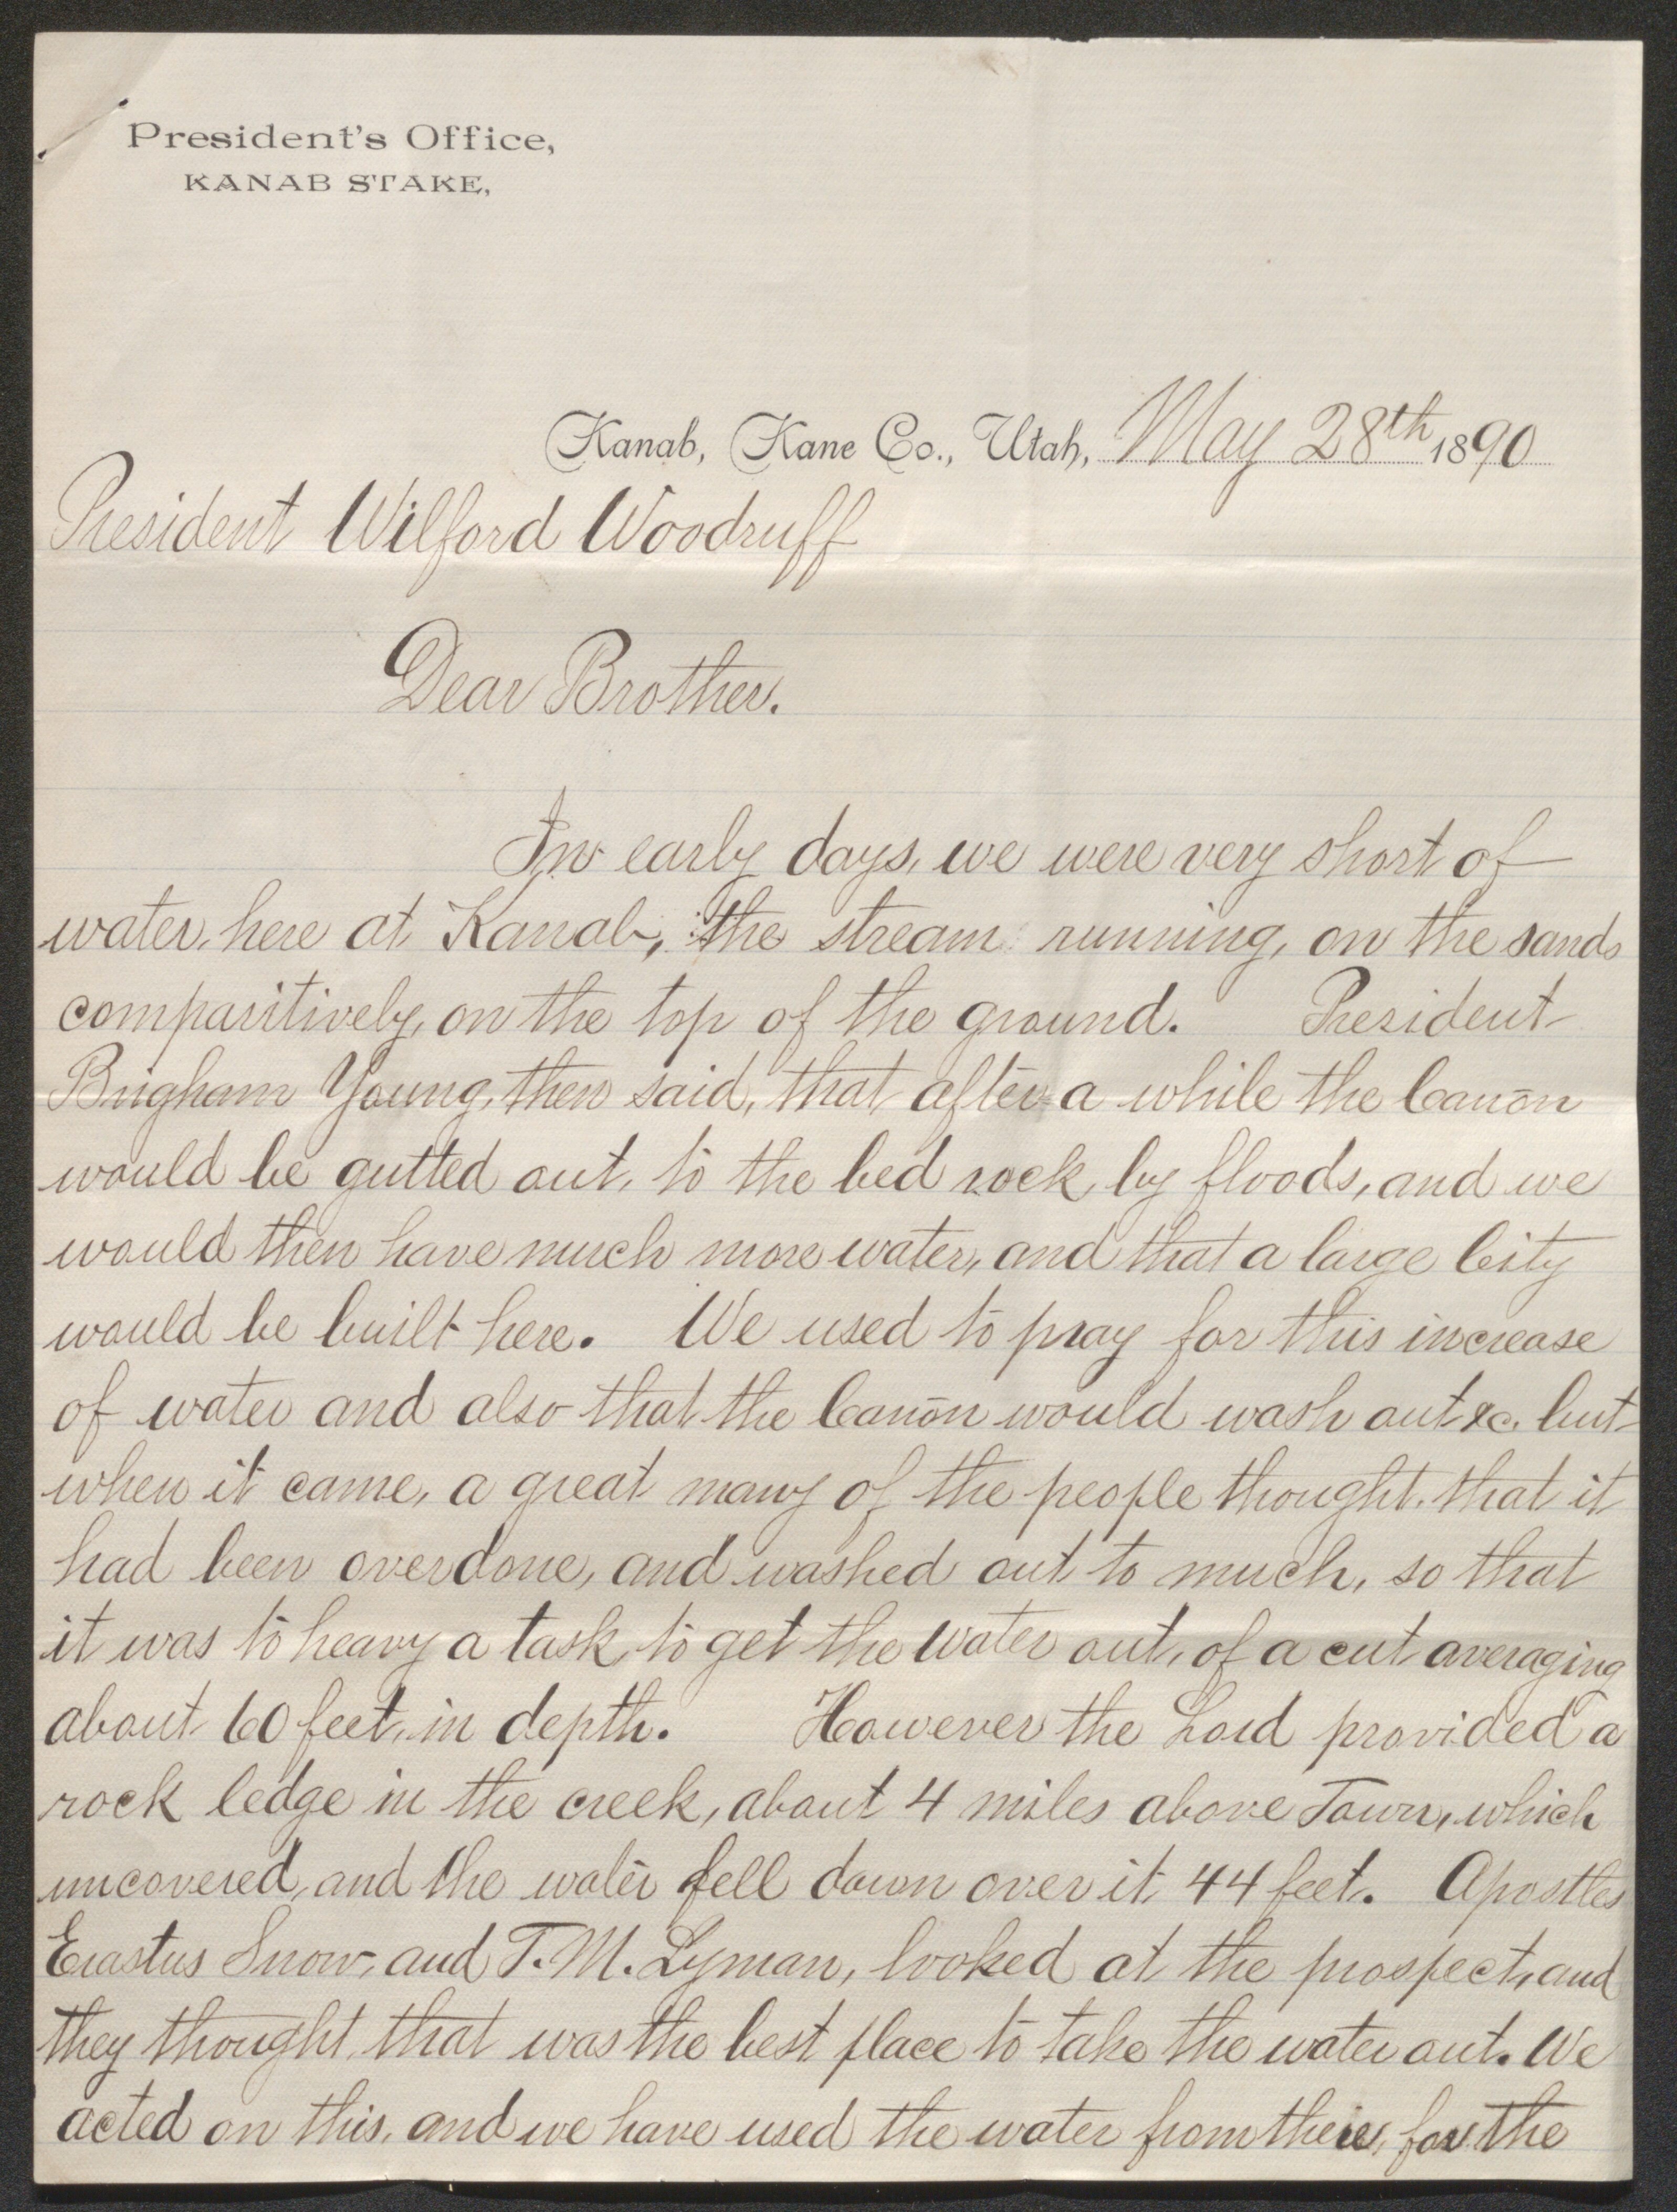 President's Office,
KANAB STAKE,
Kanab, Kane Co., Utah, May 28th 1890
President Wilford Woodruff
Dear Brother.
In early days, we were very short of
water, here at Kanab, the stream running, on the sands
comparitively, on the top of the ground. President
Brigham Young, then said, that after a while the Canōn
would be gutted out, to the bed rock, by floods, and we
would then have much more water, and that a large City
would be built here. We used to pray for this increase
of water and also that the Canōn would wash out &c. but
when it came, a great many of the people thought, that it
had been overdone, and washed out to much, so that
it was to heavy a task, to get the water out, of a cut averaging
about 60 feet, in depth. However the Lord provided a
rock ledge in the creek, about 4 miles above Town, which
uncovered, and the water fell down over it 44 feet. Apostles
Erastus Snow, and F. M. Lyman, looked at the prospect, and
they thought, that was the best place to take the water out. We
acted on this, and we have used the water from there, for the